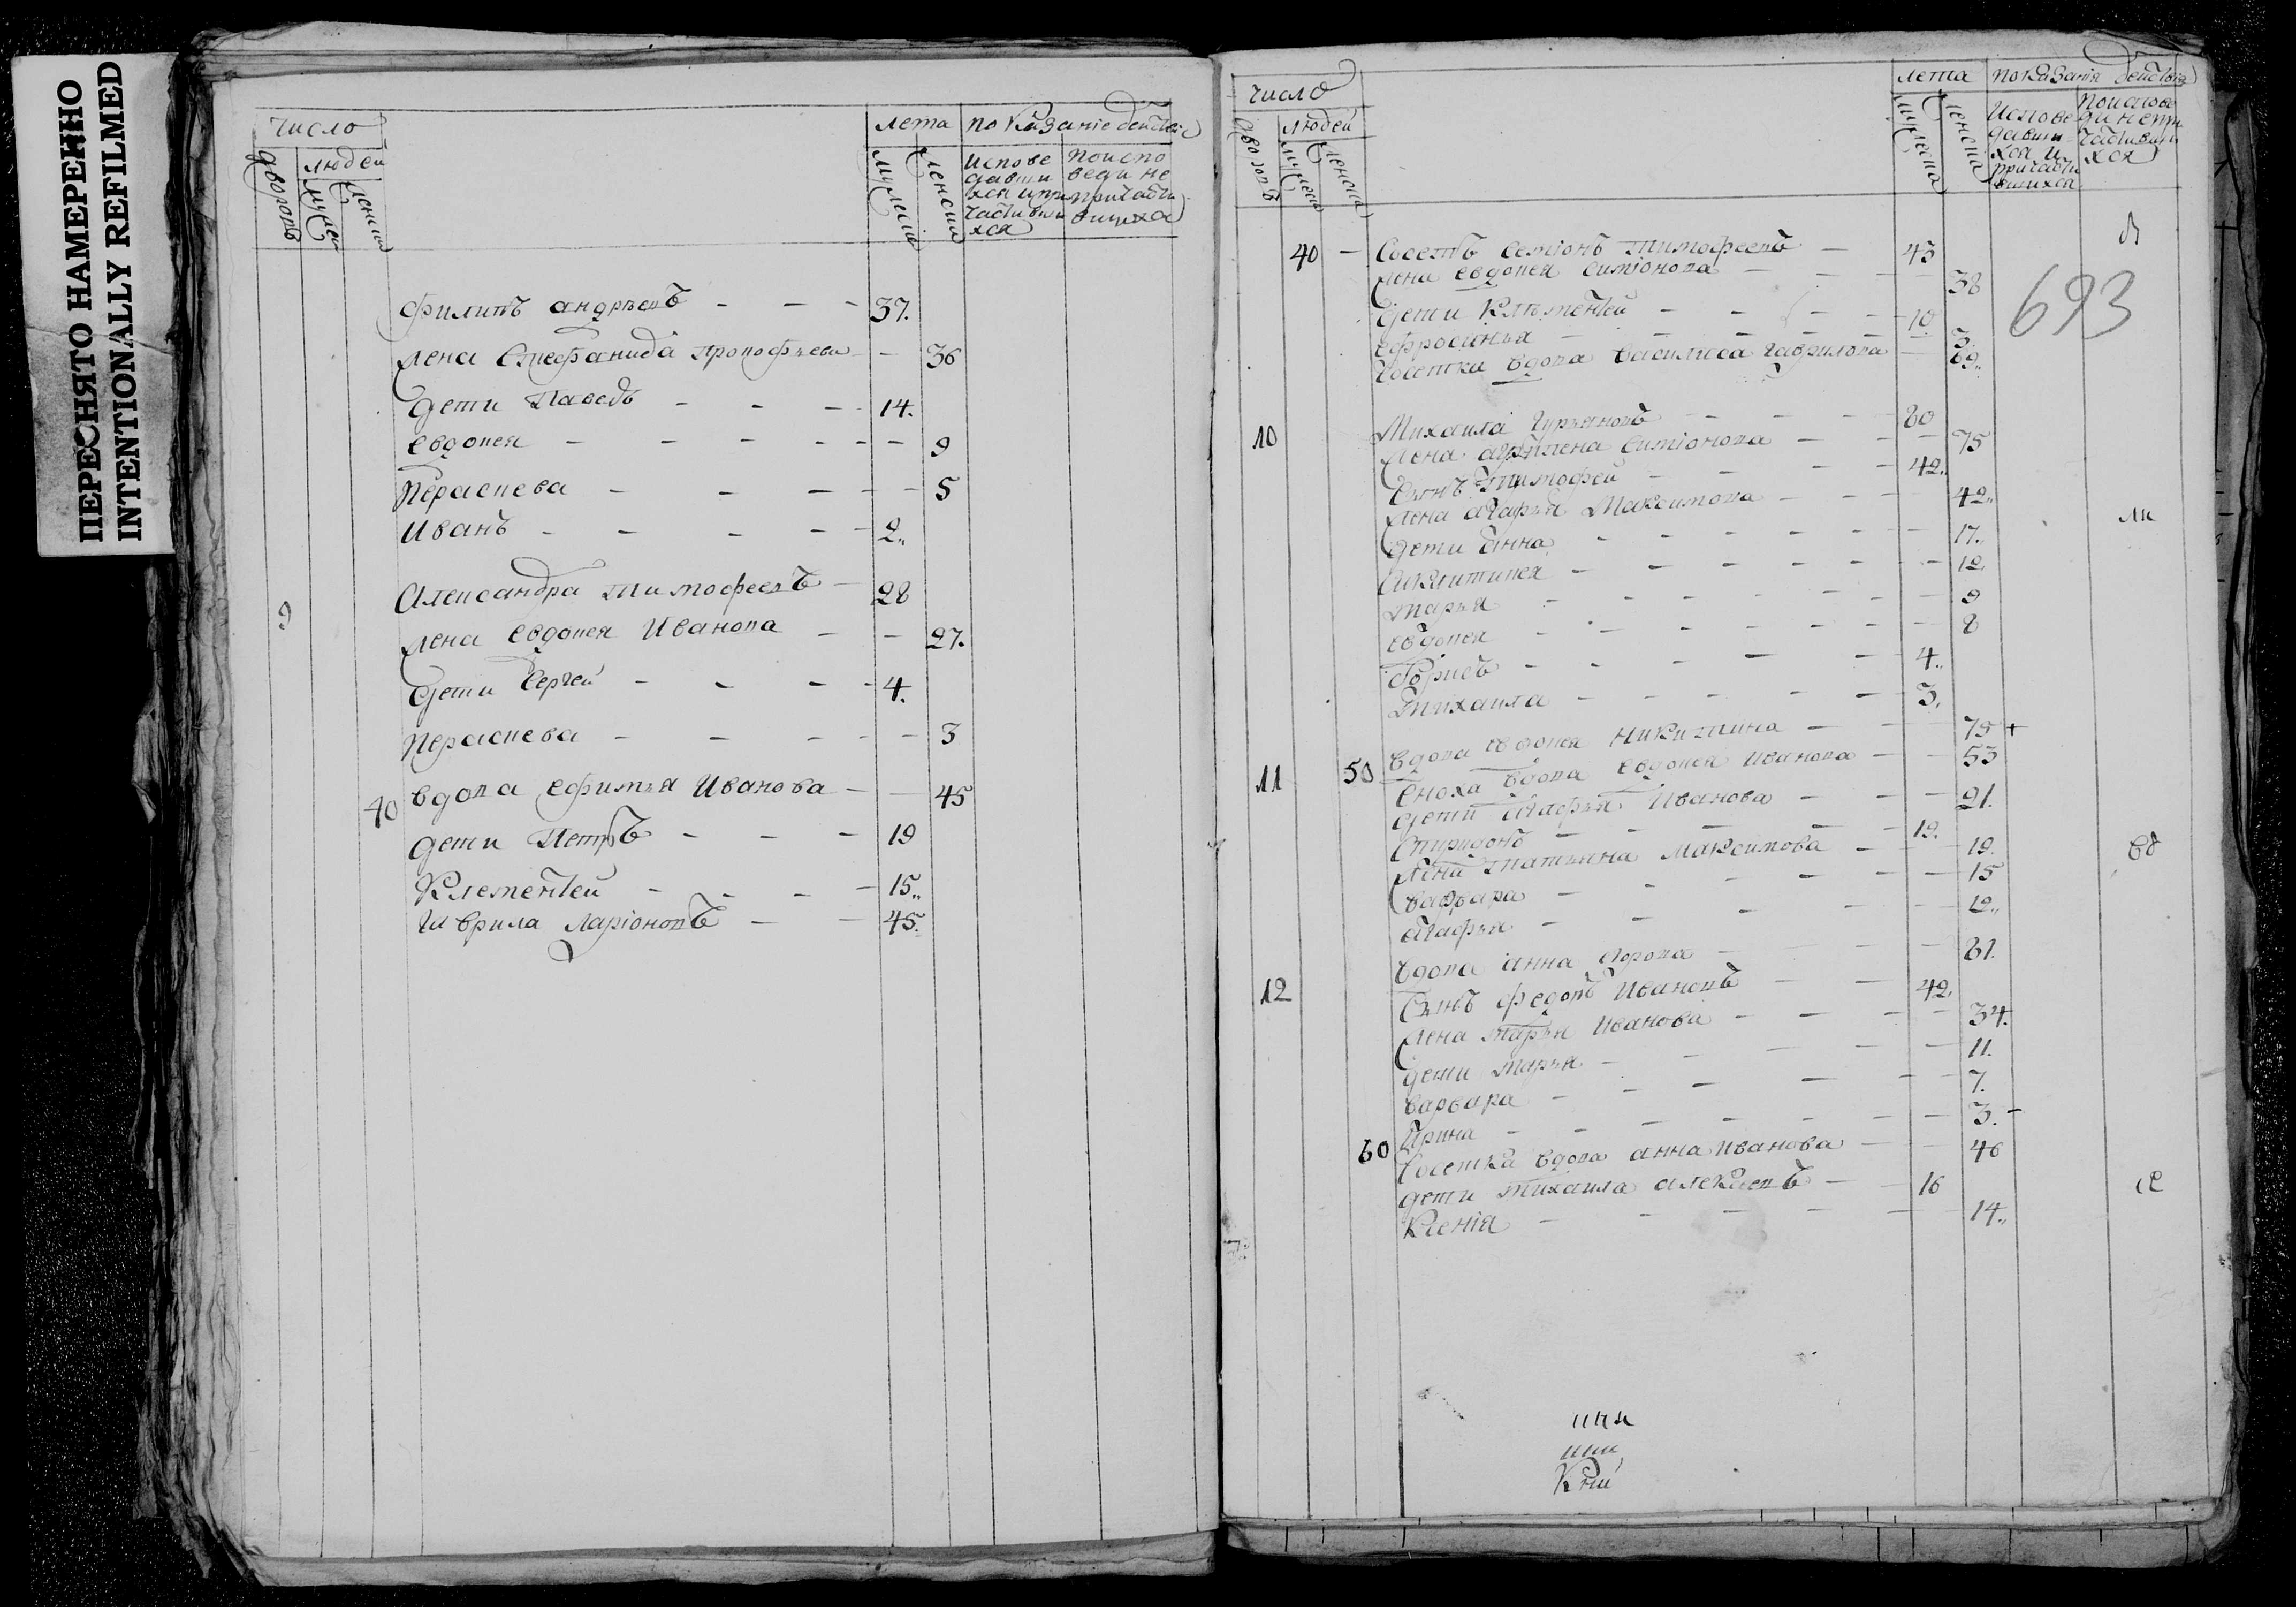 ПЕРЕСНЯТО НАМЕРЕННО
INTENTIONALLY REFILMED
число
лета показание действ
дворовъ людей
мужеска женска
мужеска женска
испове
давши
хся и при
частивши
хся
по испо
веди не
причасти
вшихся
Филипъ андреевъ - - - 37.
жена Стефанида прокофьева - 36
дети Павелъ - - - 14.
евдокея - - - - - 9
Параскева - - - - 5
Иванъ - - - - 2
9 Александра тимофеевъ - 28
жена евдокея Иванова - - 27.
дети Сергей - - - 4.
параскева - - - - 3
40 вдова ефимья Иванова - - 45
дети Петръ - - - 19
Клементей - - - 15
Гаврила Ларіоновъ - - 45
число
лета показания действ
дворовъ людей
мужеска женска
мужеска женска
испове
давши
хся и
причасти
вшихся
хся
693
40 - Соседъ семіонъ тимофеевъ - 43
жена евдокея симіонова - - - 38
дети Клементей - - - - 10
ефросинья - - - - - 3.
соседка вдова василиса гаврилова - 69
10 Михаила гурьяновъ - - - 80
жена агрипена симіонова - - - 75
сынъ тимофей - - - 42
жена агафья Максимова - - - 42
дети анна - - - - - - 17.
- - - - - - 12
марья - - - - - - 9
евдокея - - - - - - 8
борисъ - - - - - 4
михаила - - - - - 3
вдова евдокея никитина - - - 75 +
11 50 сноха вдова евдокея иванова - - 53
дети агафья Иванова - - - 21.
спиридонъ - - - - - 19.
жена татьяна максимова - - 19.
варвара - - - - - 15
агафья - - - - - 12
вдова анна - - - 61.
12 сынъ федоръ Ивановъ - - 42
жена марья иванова - - - - 34.
дети марья - - - - - 11.
варвара - - - - - 7.
Ирина - - - - - - 3. -
60 соседка вдова анна иванова - - 46
дети михаила алексеевъ - - 16
Ксенія - - - - - 14